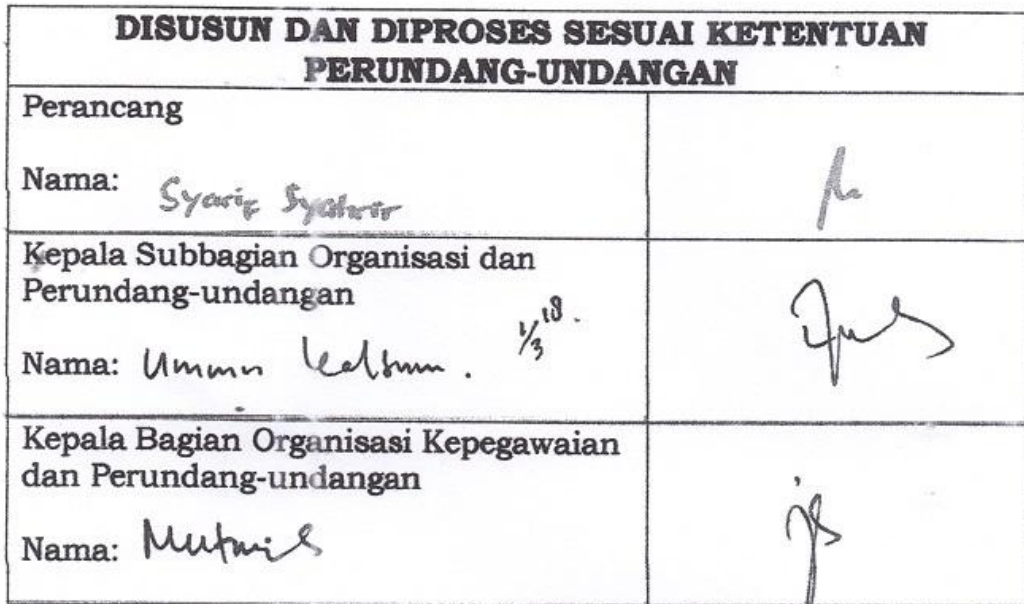 DISUSUN DAN DIPROSES SESUAI KETENTUAN
PERUNDANG-UNDANGAN
Perancang
Nama: Syarif Syahrir
Kepala Subbagian Organisasi dan
Perundang-undangan
1/3 18.
Nama: Ummu Kalsum.
Kepala Bagian Organisasi Kepegawaian
dan Perundang-undangan
Nama: